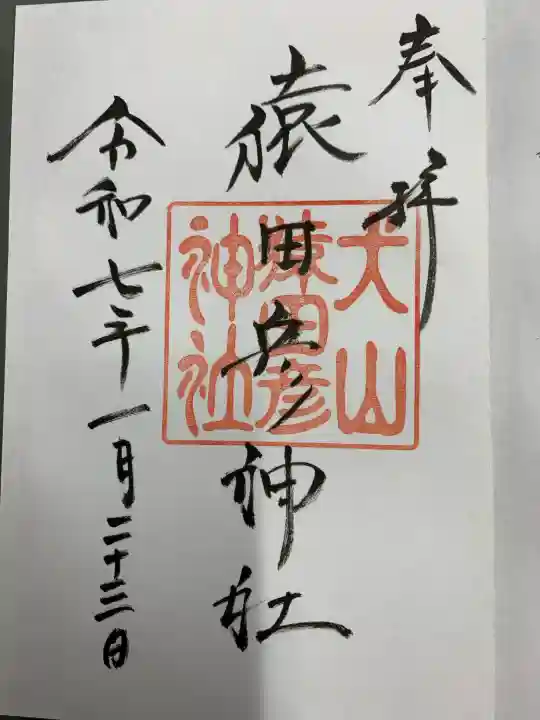 奉拝
犬山
猿田彦
神社
猿田彦神社
令和七年一月二十三日